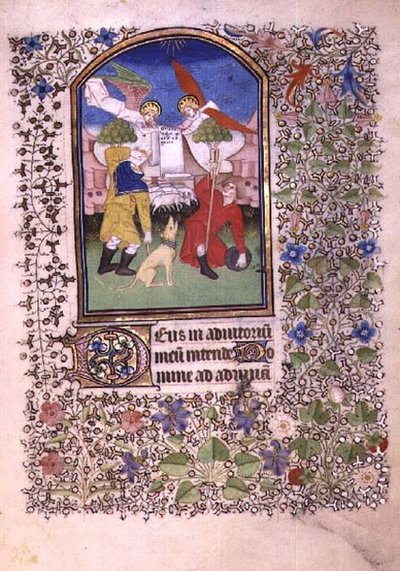 Deus in adiutoriū
meū intende Do
mine ad adiuuā